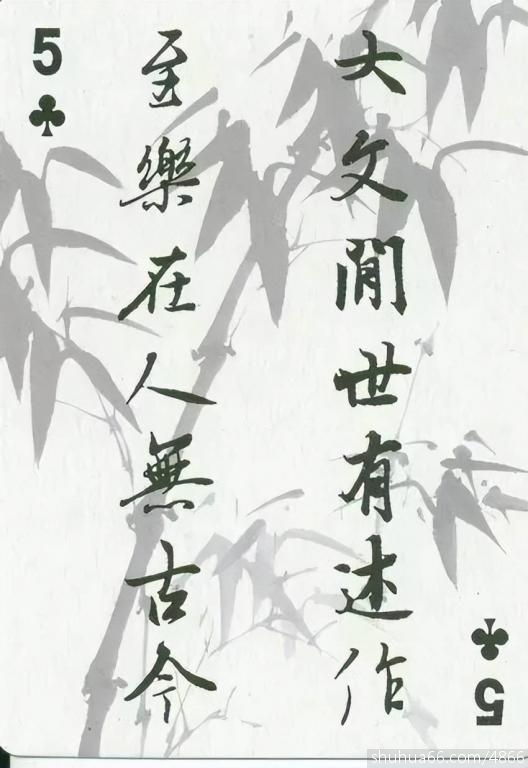 5
大文閒世有述作
至樂在人無古今
5
shuhua66.com/4866